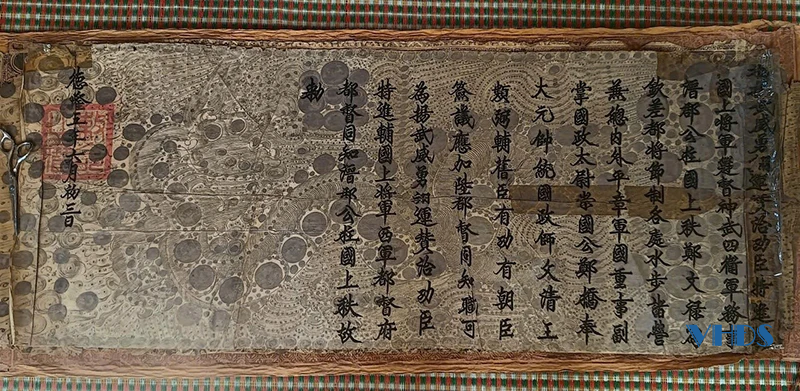 揚武威勇翊運贊治功臣特進輔
國上將軍雙督神武四衛軍務事
濬郡公柱國上秩鄭文祿爲
欽差都將節制各處水步諸營
兼總內外平章軍國重事副
掌國政太尉崇國公鄭橋奉
大元帥統國政師父清王
頼弼輔舊臣有功有朝臣
僉議應加陞都督同知職可
為揚武威勇翊運贊治功臣
特進輔國上將軍西軍都督府
都督同知濬郡公柱國上秩故
勅
德隆三年六月初三日
VHDS